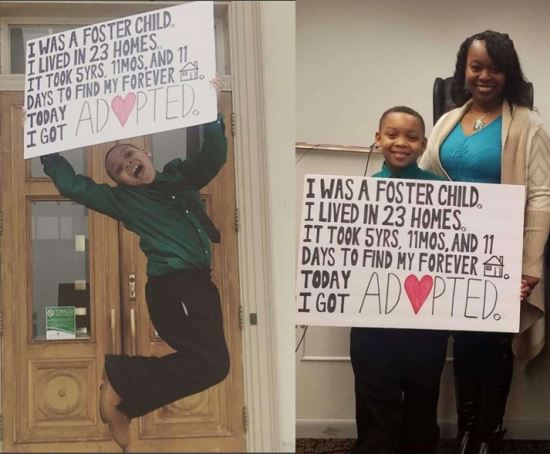 I WAS A FOSTER CHILD.
I LIVED IN 23 HOMES.
IT TOOK 5YRS, 11MOS, AND 11
DAYS TO FIND MY FOREVER
TODAY
I GOT ADOPTED.
I WAS A FOSTER CHILD.
I LIVED IN 23 HOMES.
IT TOOK 5YRS, 11MOS, AND 11
DAYS TO FIND MY FOREVER
TODAY
I GOT ADPTED.